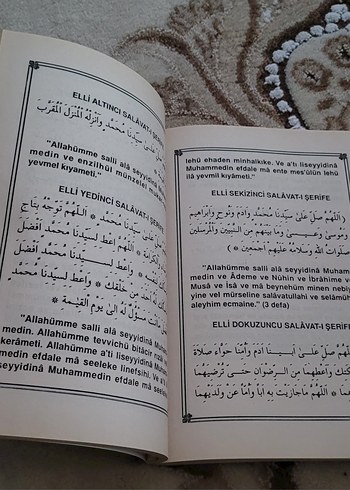 ELLİ ALTINCI SALÂVAT-I ŞERİFE
صَلِّ عَلَى سَيِّدِنَا مُحَمَّدٍ وَأَنْزِلْهُ الْمُنْزَلَ الْمُقَرَّبَ
"Allahümme salli alâ seyyidinâ
medin ve enzilhül münzelel
yevmel kıyameti."
ELLİ YEDİNCİ SALÂVAT-I ŞERİFE
صَلِّ عَلَى سَيِّدِنَا مُحَمَّدٍ * اَللّٰهُمَّ تَوِّجْهُ بِتَاجِ
اَللّٰهُمَّ اَعْطِ لِسَيِّدِنَا مُحَمَّدٍ اَفْضَلَ
وَاَعْطِ لِسَيِّدِنَا مُحَمَّدٍ اَفْضَلَ
مِنْ خَلْقِكَ * وَاَعْطِ لِسَيِّدِنَا مُحَمَّدٍ
مَسْؤُلٌ لَهُ اِلَى يَوْمِ الْقِيٰمَةِ *
"Allahümme salli alâ seyyidinâ
medin. Allahümme tevvichü bitâcil
kerâmeti. Allahümme a'ti liseyyidinâ
medin efdale mâ seeleke linefsihi. Ve a'ti
seyyidinâ Muhammedin efdale mâ seeleke
lehü ehaden minhalkıke. Ve a'tı liseyyidinâ
Muhammedin efdale mâ ente mes'ülün lehü
ilâ yevmil kıyâmeti."
ELLİ SEKİZİNCİ SALÂVAT-I ŞERİFE
اَللّٰهُمَّ صَلِّ عَلَى سَيِّدِنَا مُحَمَّدٍ وَاٰدَمَ وَنُوحٍ وَاِبْرَاهِيمَ
وَمُوسَى وَعِيسَى وَمَا بَيْنَهُمْ مِنَ النَّبِيِّينَ وَالْمُرْسَلِينَ
صَلَوَاتُ اللّٰهِ وَسَلَامُهُ عَلَيْهِمْ اَجْمَعِينَ *
"Allahümme salli alâ seyyidinâ
medin ve Âdeme ve Nûhin ve İbrâhime
Musâ ve İsâ ve mâ beynehüm minen nebiy
yine vel mürseline salâvatullahi ve selâmüh
aleyhim ecmaine." (3 defa)
ELLİ DOKUZUNCU SALÂVAT-I ŞERİFE
صَلِّ عَلَى اَبِينَا اٰدَمَ وَاُمِّنَا حَوَّاءَ صَلَاةَ
وَاَعْطِهِمَا مِنَ الرِّضْوَانِ حَتَّى تُرْضِيَهُمَا
اَللّٰهُمَّ مَا جَازَيْتَ بِهِ اَبًا وَاُمًّا عَنْ وَلَدَيْهِمَا